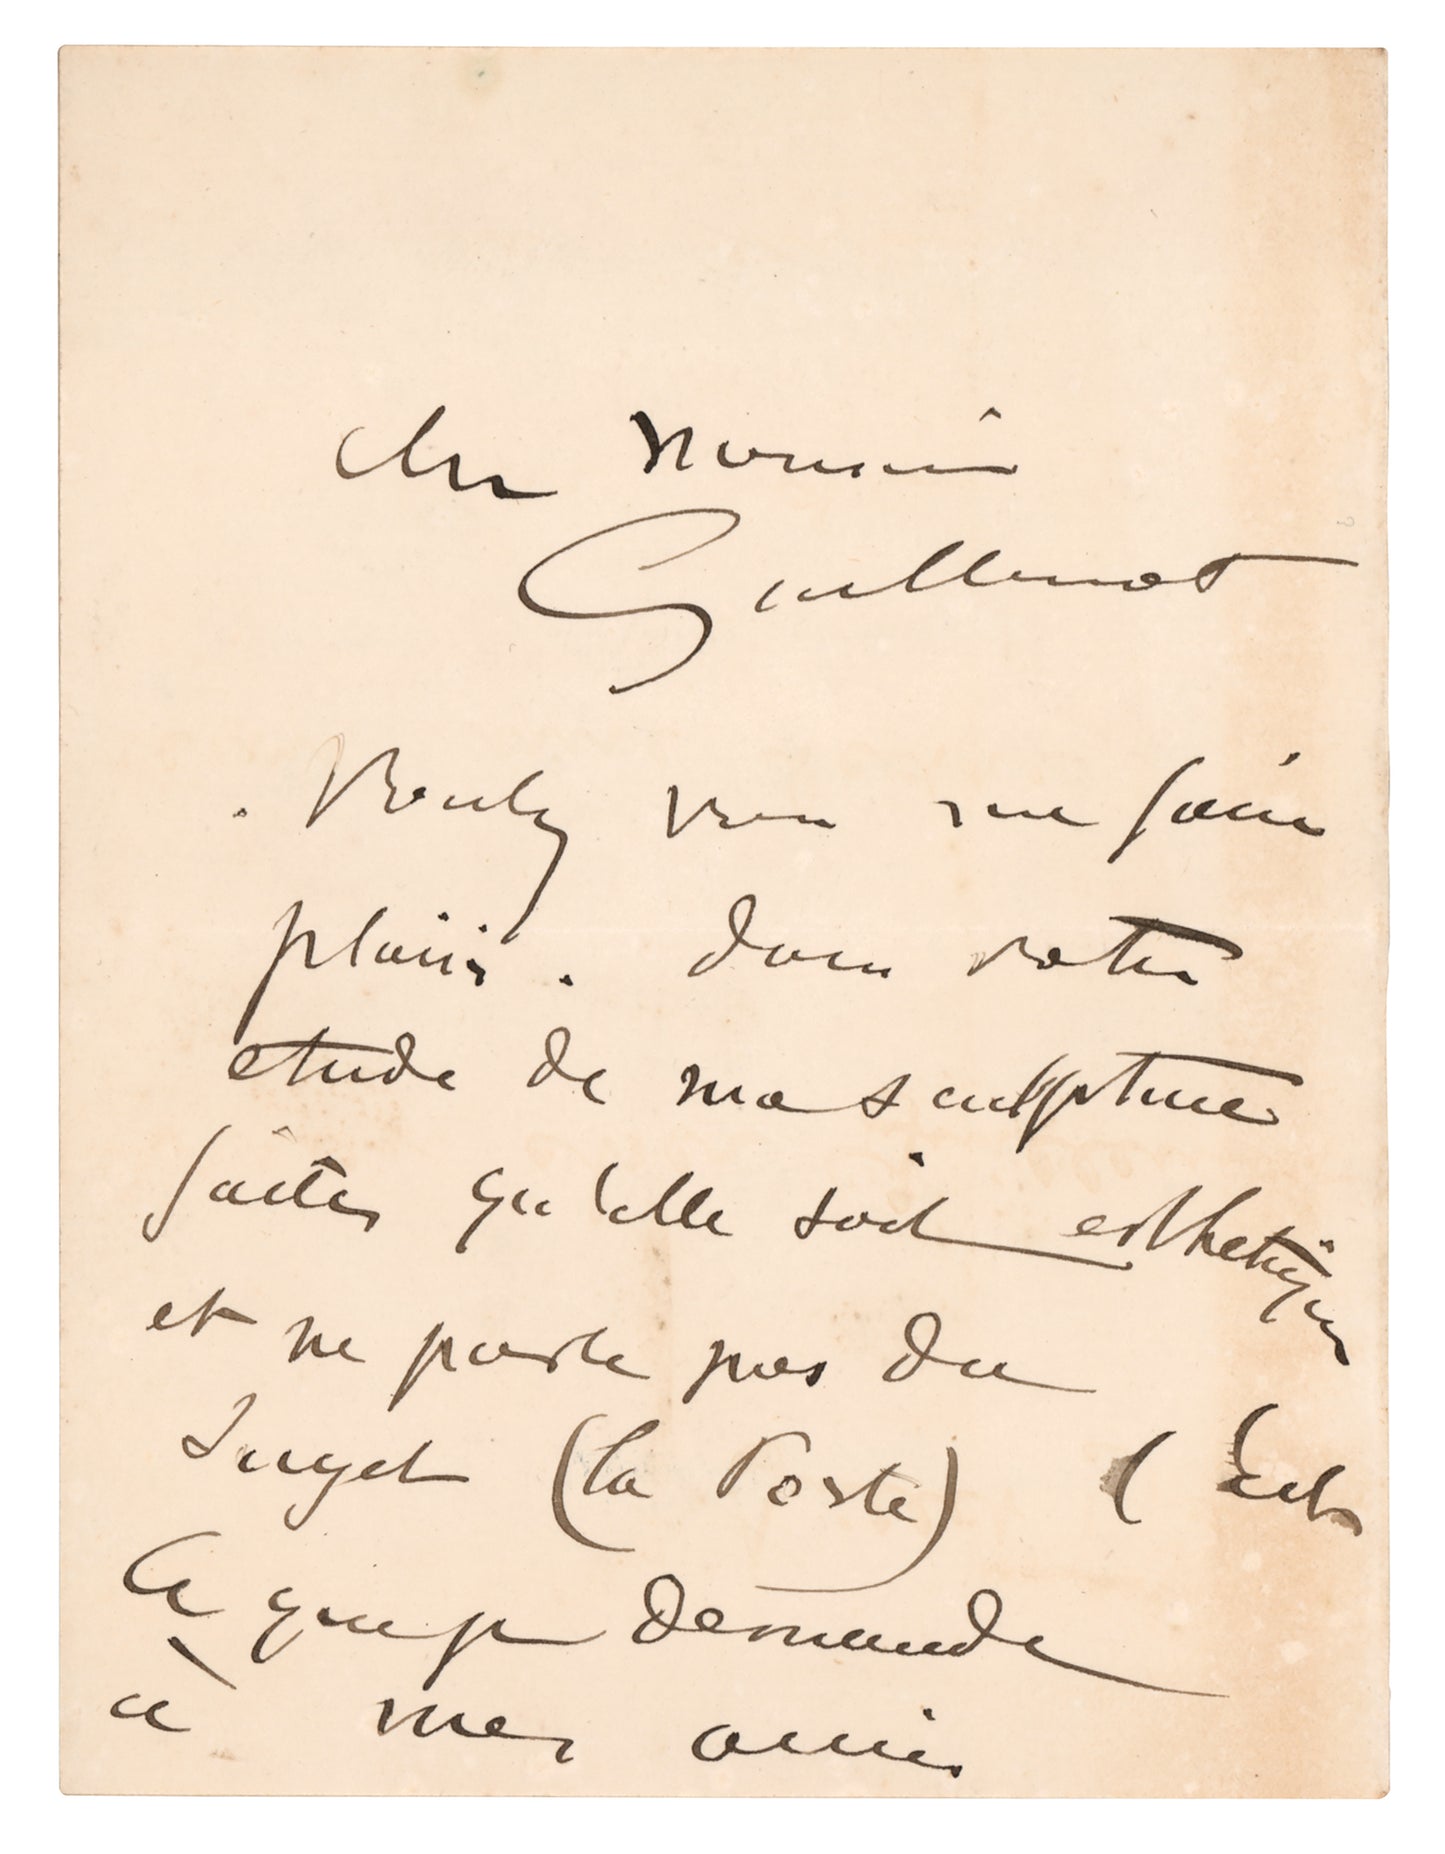 cher Monsieur
Guillemot
. Voulez vous me faire
plaisir. dans votre
etude de ma sculpture
faites qu'elle soit esthetique
et ne parle pas du
sujet (la Porte) c'est
ce que je demande
à mes amis